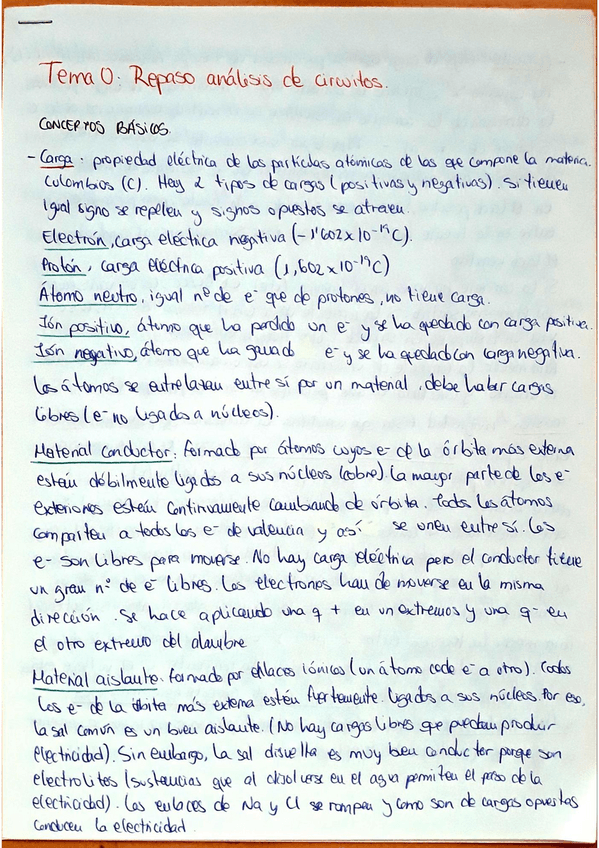 Tema 0: Repaso análisis de circuitos.
CONCEPTOS BÁSICOS.
- Carga: propiedad eléctrica de las partículas atómicas de las que compone la materia.
Culombios (C). Hay 2 tipos de cargas (positivas y negativas). Si tienen
igual signo se repelen y signos opuestos se atraen.
Electrón, carga eléctrica negativa (-1'602x10⁻¹⁹C).
Protón, carga eléctrica positiva (1,602x10⁻¹⁹C)
Átomo neutro, igual nº de e⁻ que de protones, no tiene carga.
Ión positivo, átomo que ha perdido un e⁻ y se ha quedado con carga positiva.
Ión negativo, átomo que ha ganado e⁻ y se ha quedado con carga negativa.
Los átomos se entrelazan entre sí por un material, debe haber cargas
libres (e⁻ no ligados a núcleos).
Material conductor: formado por átomos cuyos e⁻ de la órbita más externa
están débilmente ligados a sus núcleos (cobre). La mayor parte de los e⁻
exteriores están continuamente cambiando de órbita. Todos los átomos
comparten a todos los e⁻ de valencia y así se unen entre sí. Los
e⁻ son libres para moverse. No hay carga eléctrica pero el conductor tiene
un gran nº de e⁻ libres. Los electrones han de moverse en la misma
dirección. Se hace aplicando una q + en un extremos y una q- en
el otro extremo del alambre
Material aislante: formado por enlaces iónicos (un átomo cede e⁻ a otro). Todos
los e⁻ de la órbita más externa están fuertemente ligados a sus núcleos. Por eso,
la sal común es un buen aislante. (No hay cargas libres que puedan producir
electricidad). Sin embargo, la sal disuelta es muy buen conductor porque son
electrolitos (sustancias que al disolverse en el agua permiten el paso de la
electricidad). Los enlaces de Na y Cl se rompen y como son de cargas opuestas
conducen la electricidad.